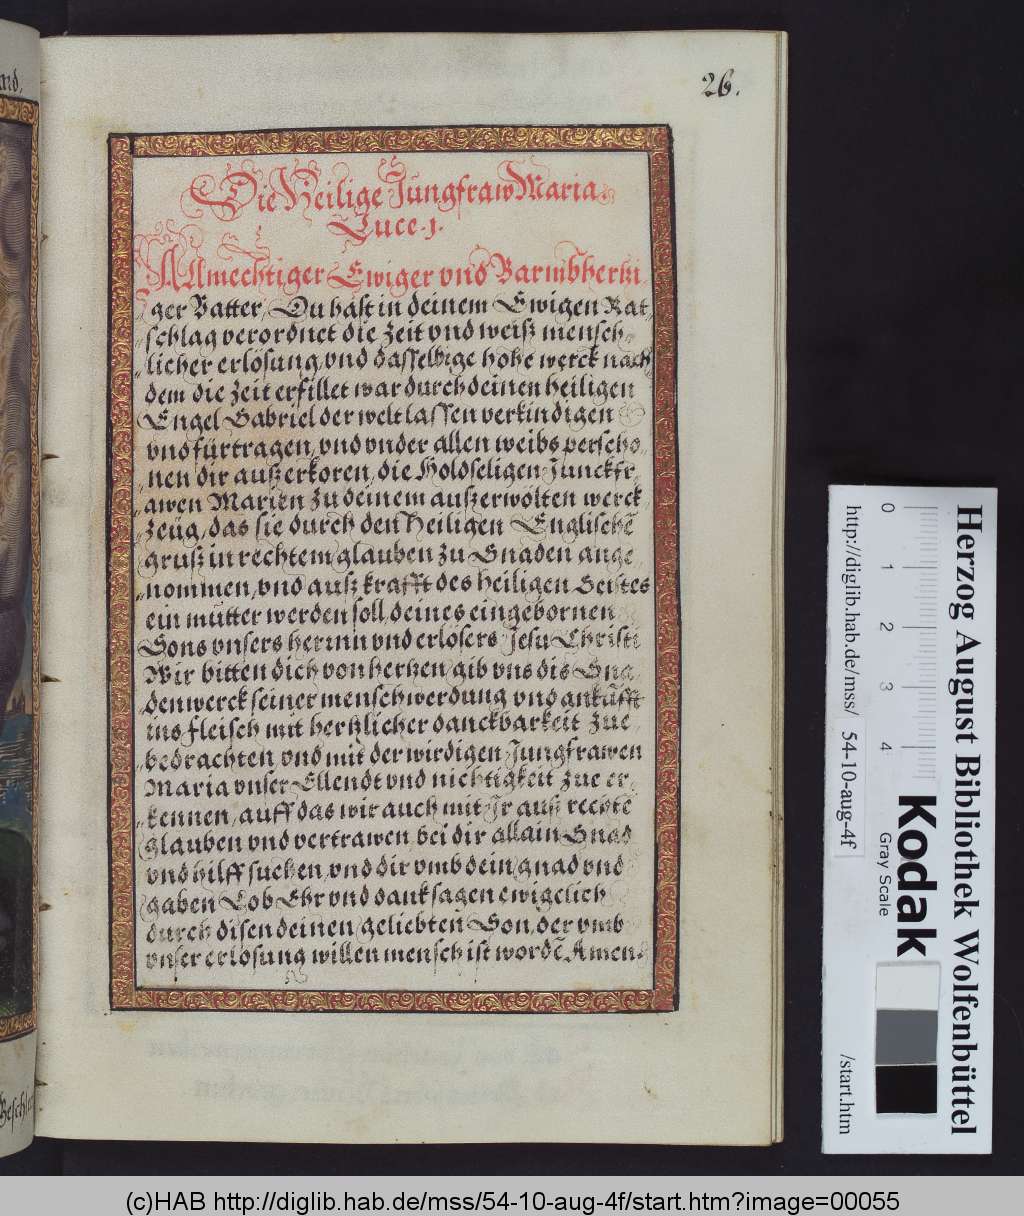 and.
26.
Die Heilige Jungfraw Maria.
Luce .j.
Allmechtiger Ewiger vnd Barmbhertzi
ger Vatter, Du hast in deinem Ewigen Rat,
schlag verordnet die zeit vnd weiß mensch,
licher erlösung, vnd dasselbige hohe werck nach
dem die zeit erfillet war durch deinen heiligen
Engel Gabriel der welt lassen verkindigen
vnd fürtragen, vnd vnder allen weibs perscho,
nen dir außerkoren, die Holdseligen Junckfr,
awen Marien zu deinem außerwölten werck,
zeüg, das sie durch den Heiligen Englischē
gruß in rechtem glauben zu Gnaden ange
nommen, vnd auß krafft des heiligen Geistes
ein mutter werden soll, deines eingebornen
Sons vnsers herrnn vnd erlösers Jesu Christi
Wir bitten dich von hertzen, gib vns dis Gna,
denwerck seiner menschwerdung vnd ankufft
ins fleisch mit hertzlicher danckbarkeit zue
bedrachten, vnd mit der wirdigen Jungfrawen
Maria vnser Ellendt vnd nichtigkeit zue er,
kennen, auff das wir auch mit Ir auß rechtē
glauben vnd vertrawen bei dir allain Gnad
vnd hilff suchen, vnd dir vmb dein gnad vnd
gaben Lob Ehr vnd danck sagen ewigclich
durch disen deinen geliebten Son, der vmb
vnser erlösung willen mensch ist wordē. Amen.
Herzog August Bibliothek Wolfenbüttel
http://diglib.hab.de/mss/ 54-10-aug-4f /start.htm
0 1 2 3 4
Kodak
Gray Scale
(c)HAB http://diglib.hab.de/mss/54-10-aug-4f/start.htm?image=00055